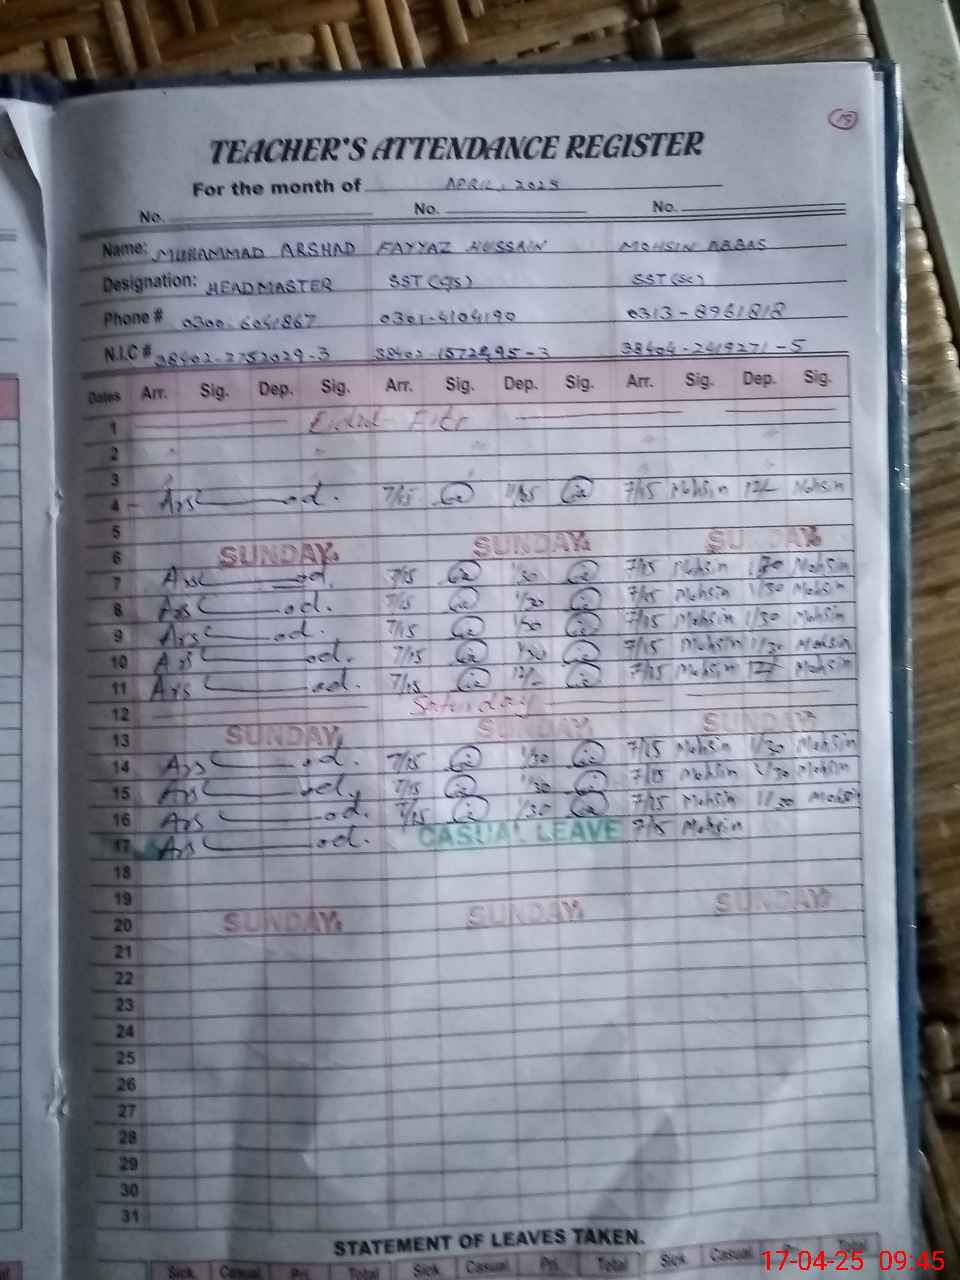 15
TEACHER'S ATTENDANCE REGISTER
For the month of APRIL, 2025
No. No. No.
Name: MUHAMMAD ARSHAD FAYYAZ HUSSAIN MOHSIN ABBAS
Designation: HEADMASTER SST (GS) SST (SC)
Phone # 0300-6041867 0301-4104190 0313-8961818
N.I.C # 38402-2752029-3 38402-1572495-3 38404-2419271-5
Dates Arr. Sig. Dep. Sig. Arr. Sig. Dep. Sig. Arr. Sig. Dep. Sig.
1 Eidul-Fitr
2
3
4 7/15 7/15 Mohsin 12/- Mohsin
5
6 SUNDAY SUNDAY SUNDAY
7 7/15 1/30 7/15 Mohsin 1/30 Mohsin
8 7/15 1/30 7/15 Mohsin 1/30 Mohsin
9 7/15 1/30 7/15 Mohsin 1/30 Mohsin
10 7/15 1/30 7/15 Mohsin 1/30 Mohsin
11 7/15 12/- 7/15 Mohsin 12/- Mohsin
12 Saturday
13 SUNDAY SUNDAY SUNDAY
14 7/15 1/30 7/15 Mohsin 1/30 Mohsin
15 7/15 1/30 7/15 Mohsin 1/30 Mohsin
16 7/15 1/30 7/15 Mohsin 1/30 Mohsin
17 CASUAL LEAVE 7/15 Mohsin
18
19
20 SUNDAY SUNDAY SUNDAY
21
22
23
24
25
26
27
28
29
30
31
STATEMENT OF LEAVES TAKEN.
Sick Casual Pri. Total Sick Casual Pri. Total Sick Casual Total
17-04-25 09:45